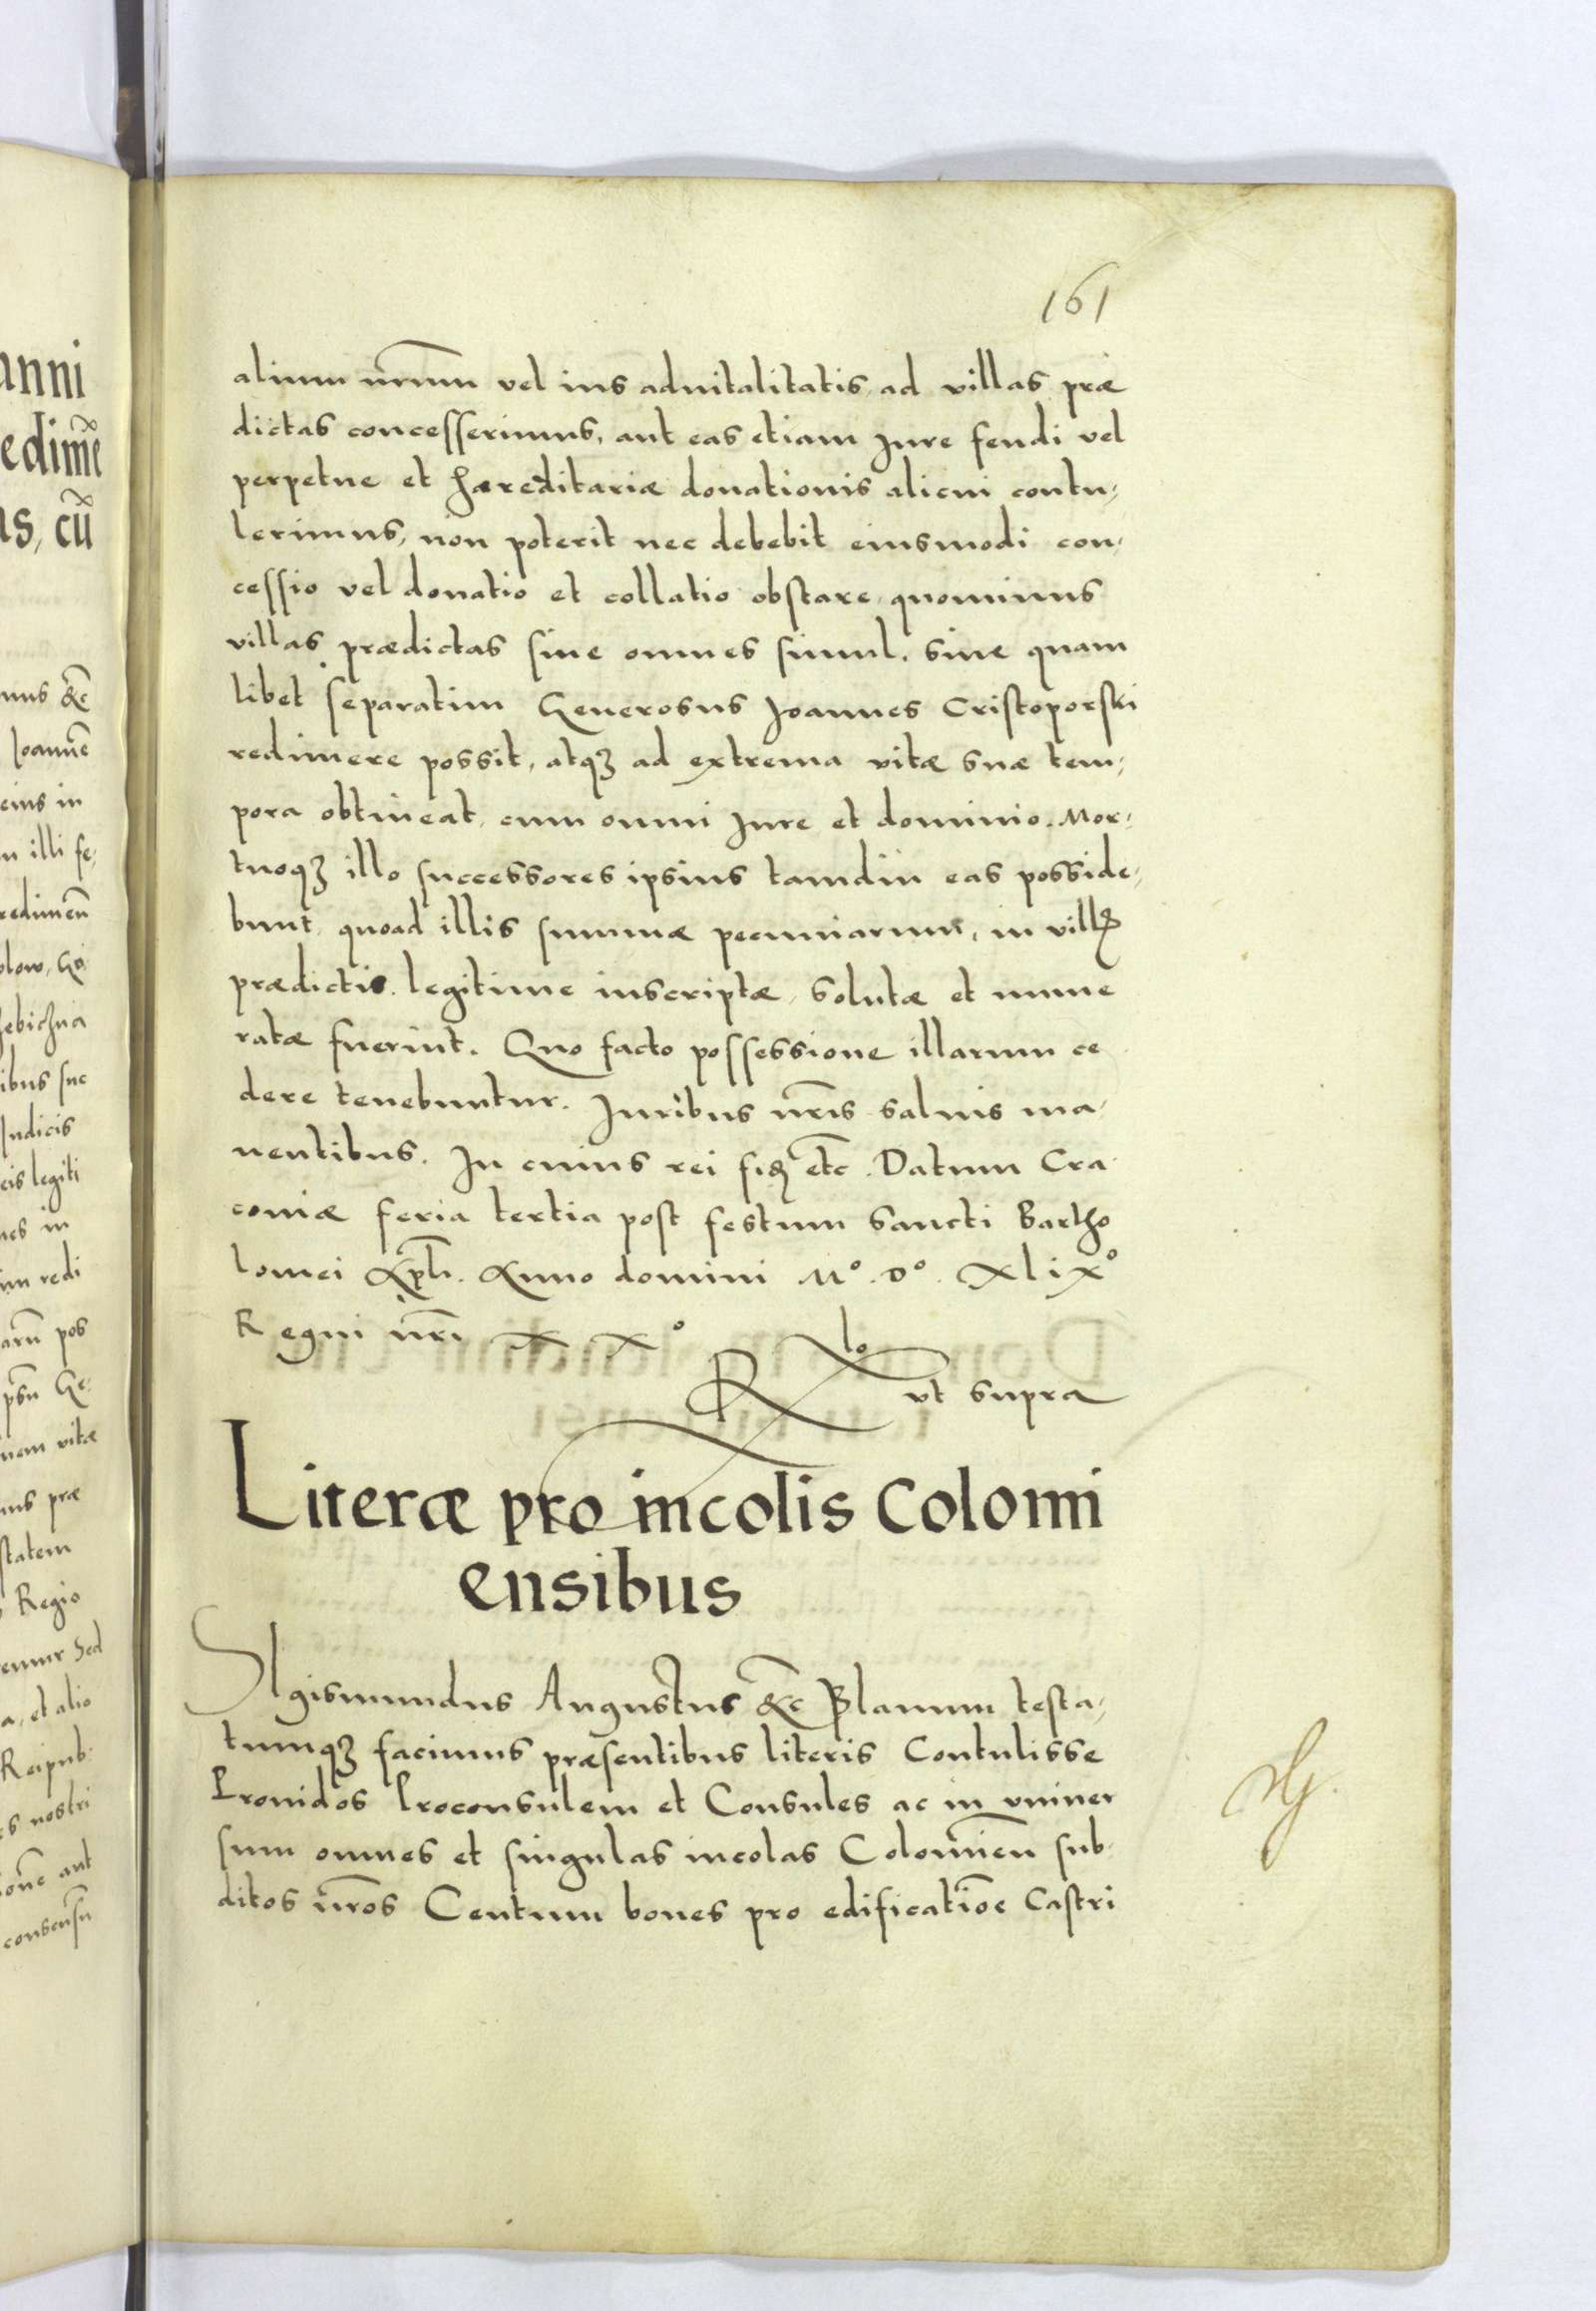 161
alium nr̃um vel ius aduitalitatis, ad villas præ
dictas concesserimus, aut eas etiam Jure feudi vel
perpetue et hæreditariæ donationis alicui contu,
lerimus, non poterit nec debebit eiusmodi con,
cessio vel donatio et collatio obstare, quominus
villas prædictas siue omnes simul, siue quam
libet separatim Generosus Joannes Cristoporski
redimere possit, atqꝫ ad extrema vitæ suæ tem,
pora obtineat, cum omni Jure et dominio. Mor,
tuoqꝫ illo successores ipsius tamdiu eas posside,
bunt, quoad illis summæ pecuniarum, in villꝭ
prædictis legitime inscriptæ, solutæ et nume
ratæ fuerint. Quo facto possessione illarum ce
dere tenebuntur. Juribus nr̃is saluis ma,
nentibus. In cuius rei fiꝫ etc̃. Datum Cra
couiæ feria tertia post festum Sancti Bartho
lomei Apl̃i. Anno domini Mº. Dº. XLiXº
Regni nr̃i XXº
Rlo ut supra
Literæ pro incolis Colomi
ensibus
SIgismundus Augustus &c̃ Planum testa,
tumqꝫ facimus præsentibus literis Contulisse
Prouidos Proconsulem et Consules ac in vniuer
sum omnes et singulas incolas Colomien̄ sub
ditos nr̃os Centum boues pro edificatiõe Castri
anni
edimẽ
as, cũ
mus &c̃
Joannẽ
eius in
m illi fe,
redimen̄
ibus suc
Judicis
cis legiti
nes in
im redi
arũ pos
psũ Ge
nem vitæ
mus præ
statem
Regio
emur Sed
a, et alio
Reipub.
es nostri
ionẽ aut
consensũ